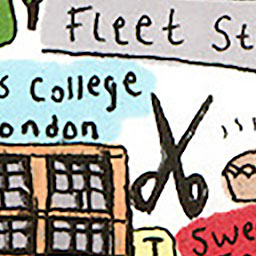 Fleet St
s College
ondon
T
Swe